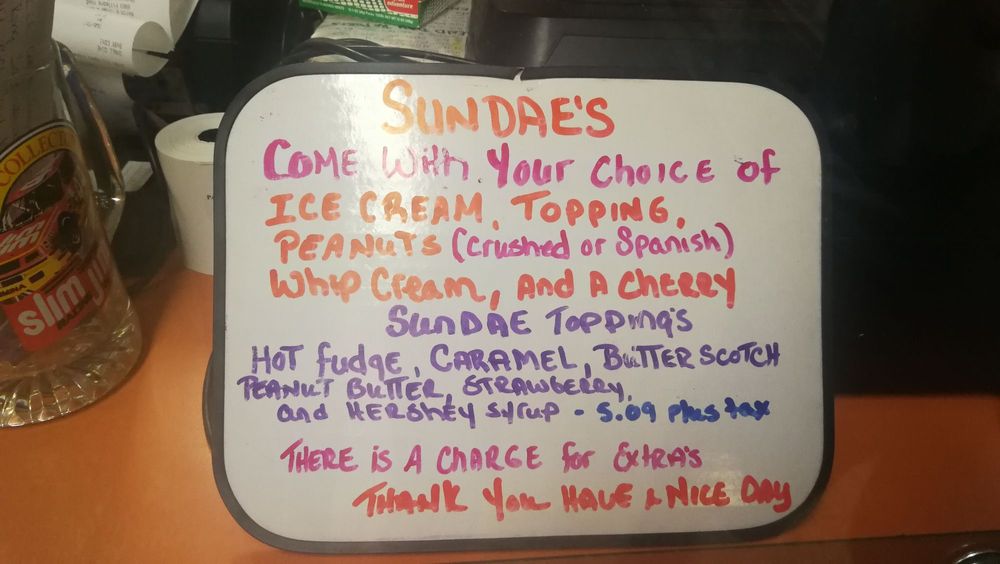 SUNDAE'S
COME With Your CHOICE of
ICE CREAM, TOPPING,
PEANUTS (Crushed or Spanish)
Whip Cream, And A CHERRY
SUNDAE TOPPING'S
HOT fudge, CARAMEL, BUTTERSCOTCH
PEANUT BUTTER, STRAWBERRY,
and HERSHEY Syrup - 5.09 plus tax
THERE is A CHARGE for ExtRA's
THANK You HAVE A NICE DAY
COLLECT
slim